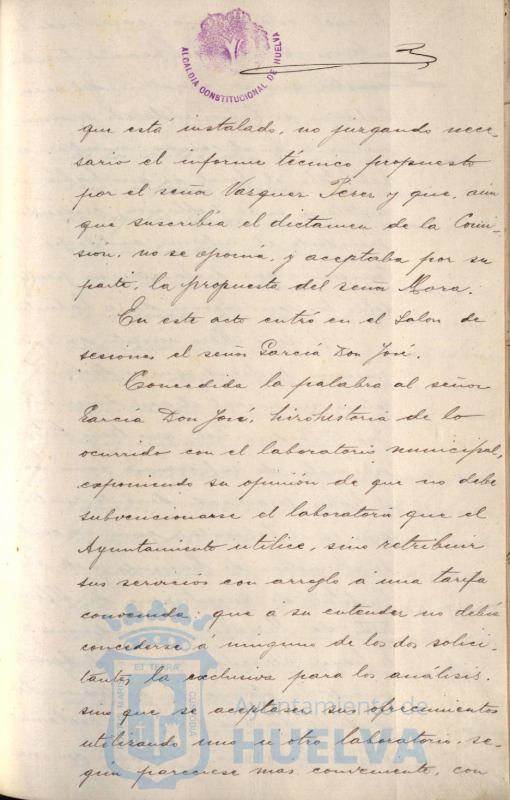 ALCALDIA CONSTITUCIONAL DE HUELVA
que está instalado, no juzgando nece-
sario el informe técnico propuesto
por el señor Vazquez Perez y que, aun
que suscribía el dictamen de la Comi-
sión, no se oponía, y aceptaba por su
parte, la propuesta del señor Mora.
En este acto entró en el Salon de
sesiones el señor García Don José.
Concedida la palabra al señor
García Don José, hizo historia de lo
ocurrido con el laboratorio municipal,
exponiendo su opinión de que no debe
subvencionarse el laboratorio que el
Ayuntamiento utilice, sino retribuir
sus servicios con arreglo á una tarifa
convenida; que á su entender no debía
concederse á ninguno de los dos solici-
tantes la exclusiva para los análisis,
sino que se aceptasen sus ofrecimientos
utilizando uno u otro laboratorio, se-
gún pareciese mas conveniente, con
Ayuntamiento de
HUELVA